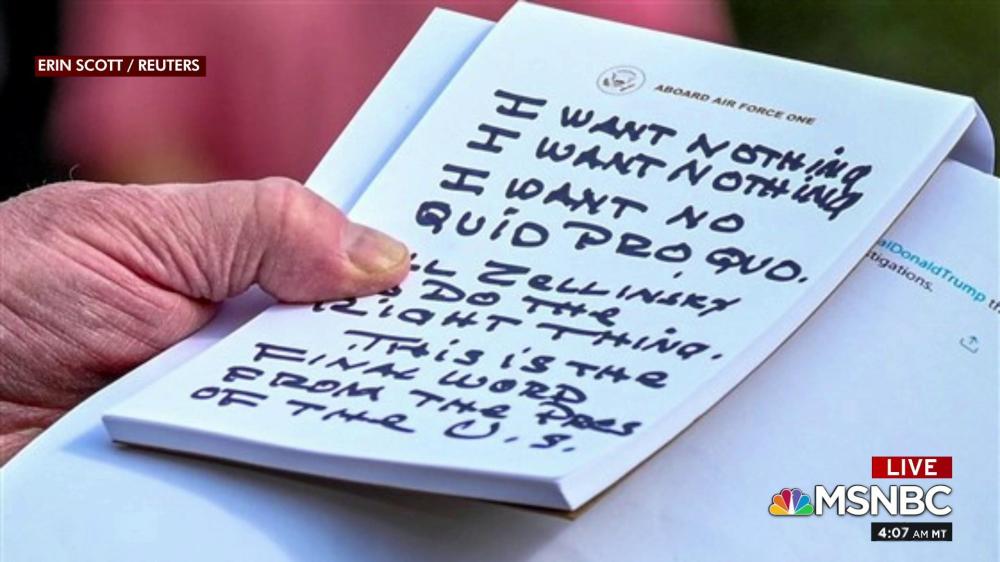 ERIN SCOTT / REUTERS
ABOARD AIR FORCE ONE
I WANT NOTHING
I WANT NOTHING
I WANT NO
QUID PRO QUO.
ZELLINSKY
DO THE
RIGHT THING.
THIS IS THE
FINAL WORD
FROM THE PRES
OF THE U.S.
alDonaldTrump th
tigations.
LIVE
MSNBC
4:07 AM MT